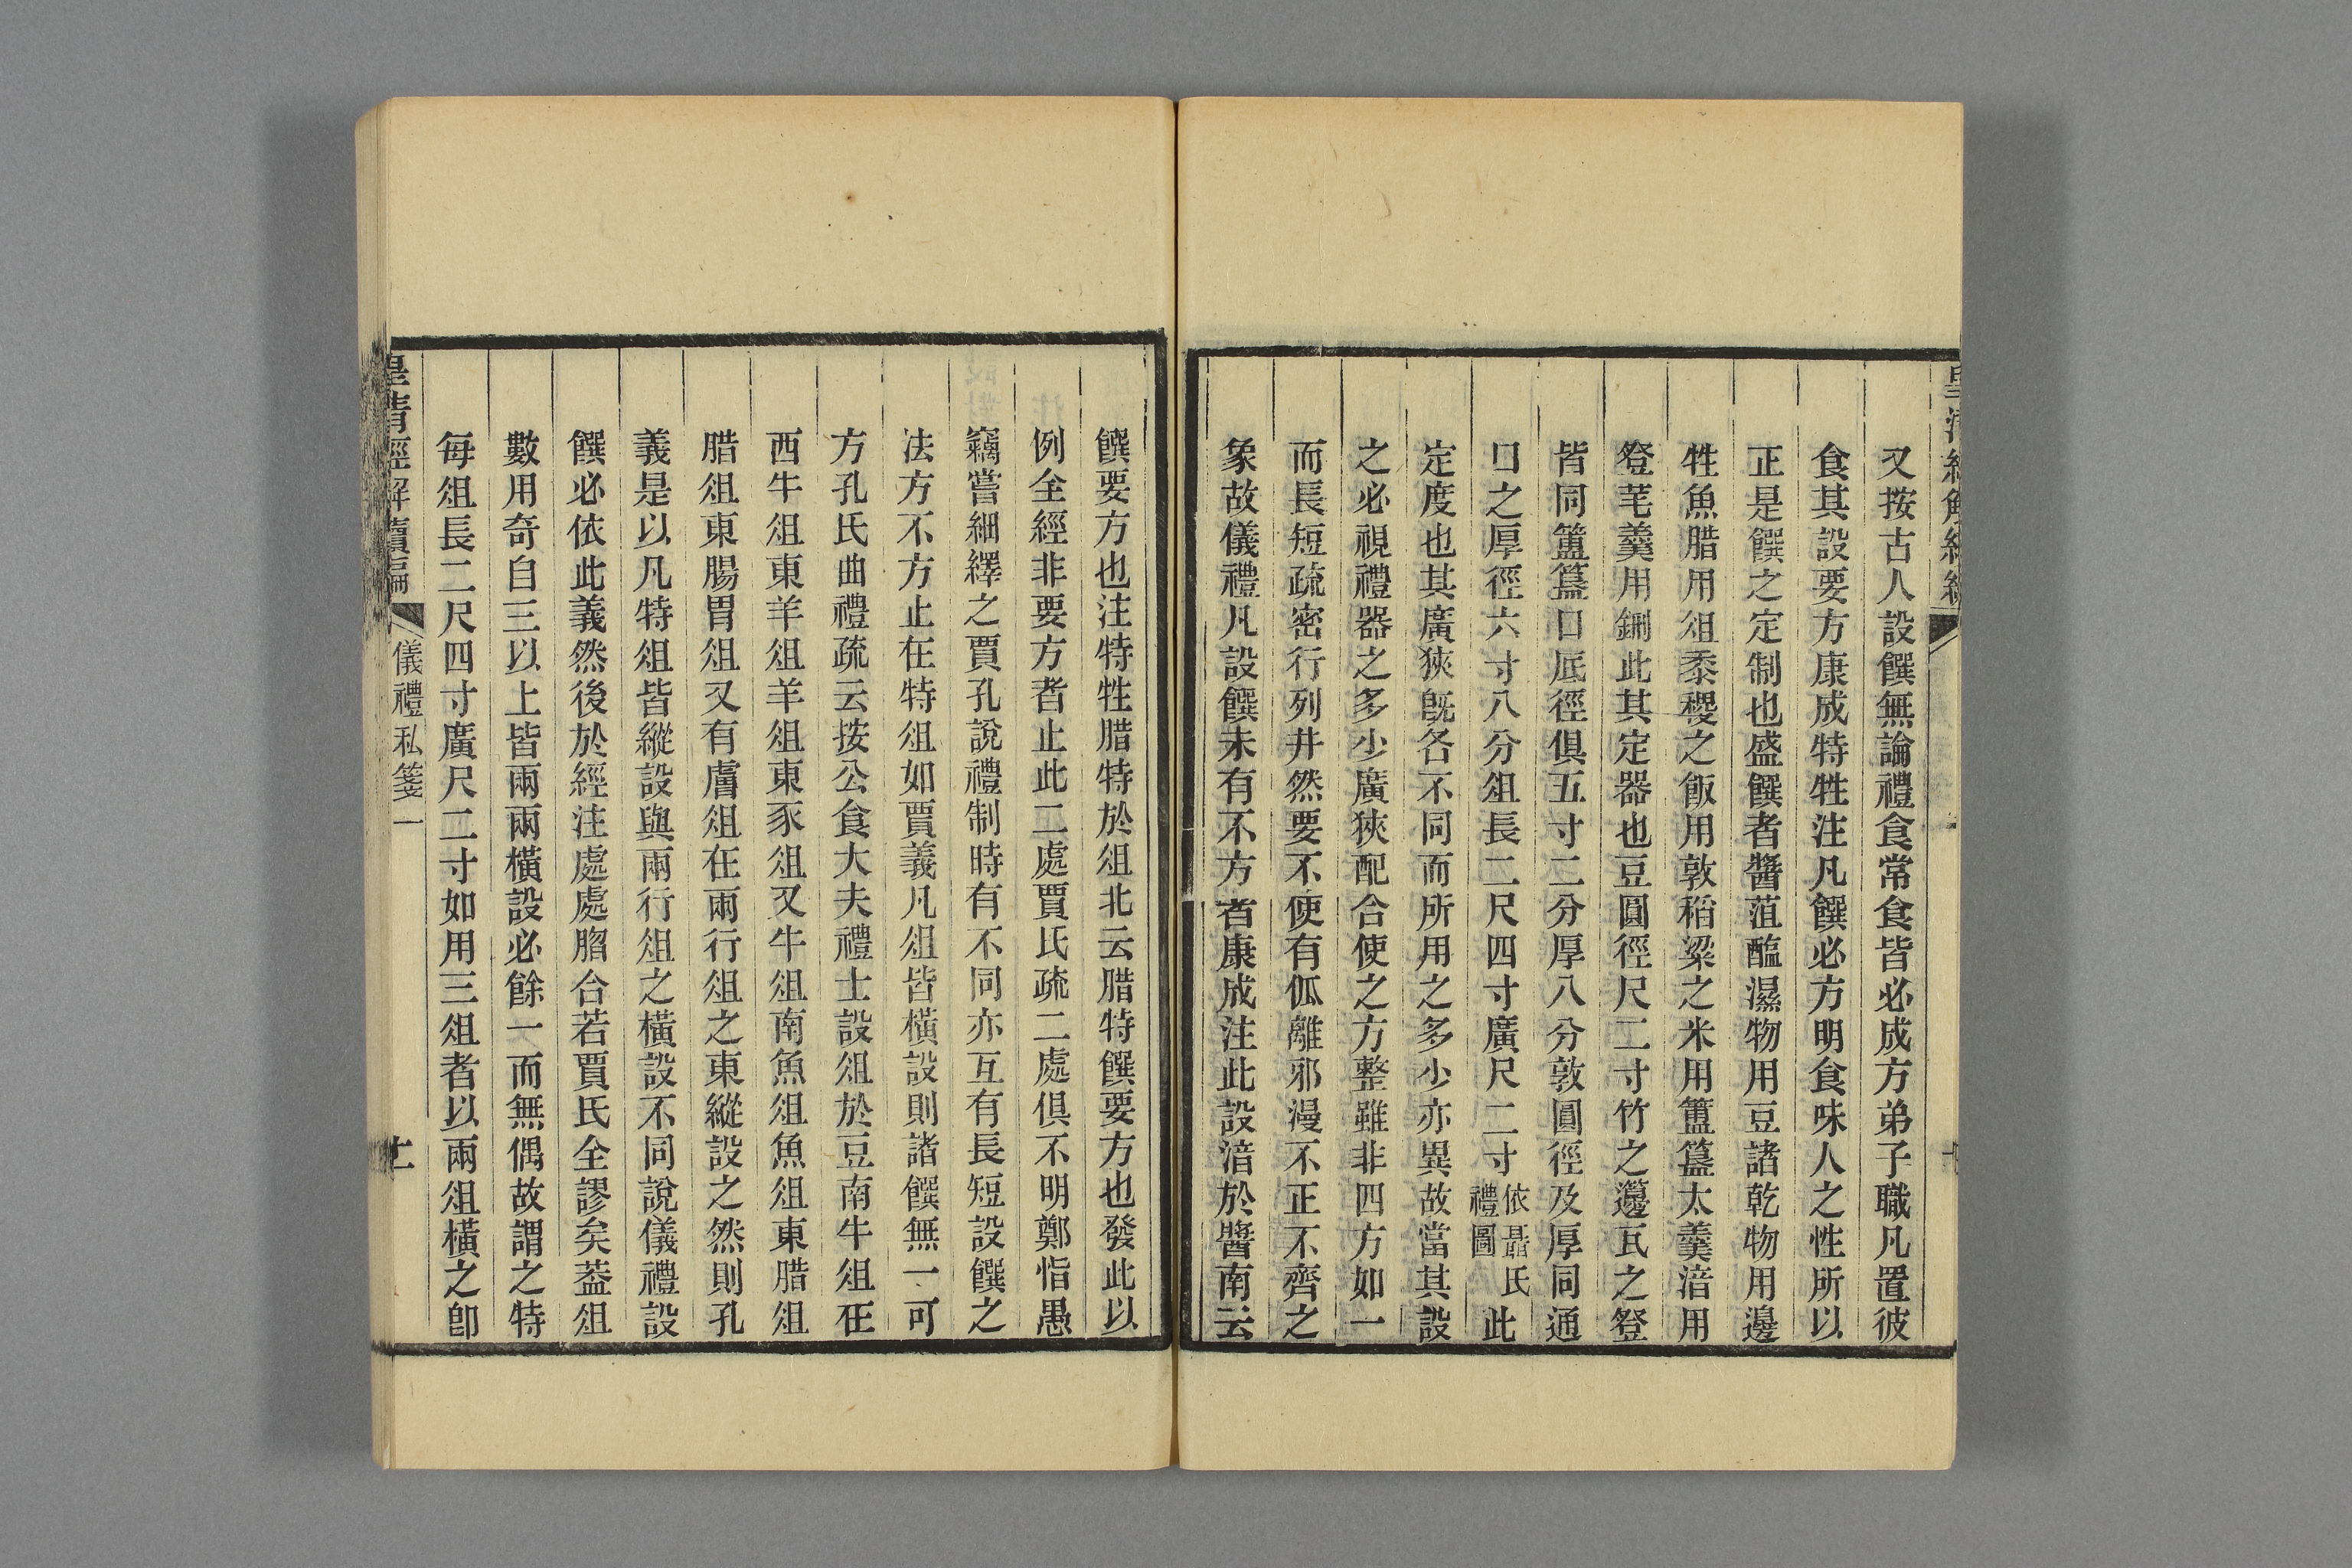 又按古人設饌無論禮食常食皆必成方弟子職凡置彼
食其設要方康成特牲注凡饌必方明食味人之性所以
正是饌之定制也盛饌者醬菹醢濕物用豆諸乾物用籩
牲魚腊用俎黍稷之飯用敦稻粱之米用簠簋太羹湆用
登芼羹用鉶此其定器也豆圓徑尺二寸竹之籩瓦之登
皆同簠簋口底徑俱五寸二分厚八分敦圓徑及厚同通
口之厚徑六寸八分俎長二尺四寸廣尺二寸依聶氏禮圖此
定度也其廣狹旣各不同而所用之多少亦異故當其設
之必視禮器之多少廣狹配合使之方整雖非四方如一
而長短疏密行列井然要不使有㐌離邪漫不正不齊之
象故儀禮凡設饌未有不方者康成注此設湆於醬南云
饌要方也注特牲腊特於俎北云腊特饌要方也發此以
例全經非要方者止此二處賈氏疏二處俱不明鄭恉愚
竊嘗細繹之賈孔說禮制時有不同亦互有長短設饌之
法方不方止在特俎如賈義凡俎皆橫設則諸饌無一可
方孔氏曲禮疏云按公食大夫禮士設俎於豆南牛俎在
西牛俎東羊俎羊俎東豕俎又牛俎南魚俎魚俎東腊俎
腊俎東腸胃俎又有膚俎在兩行俎之東縱設之然則孔
義是以凡特俎皆縱設與兩行俎之橫設不同說儀禮設
饌必依此義然後於經注處處脗合若賈氏全謬矣葢俎
數用奇自三以上皆兩兩橫設必餘一而無偶故謂之特
每俎長二尺四寸廣尺二寸如用三俎者以兩俎橫之卽
皇清經解續編
儀禮私箋一